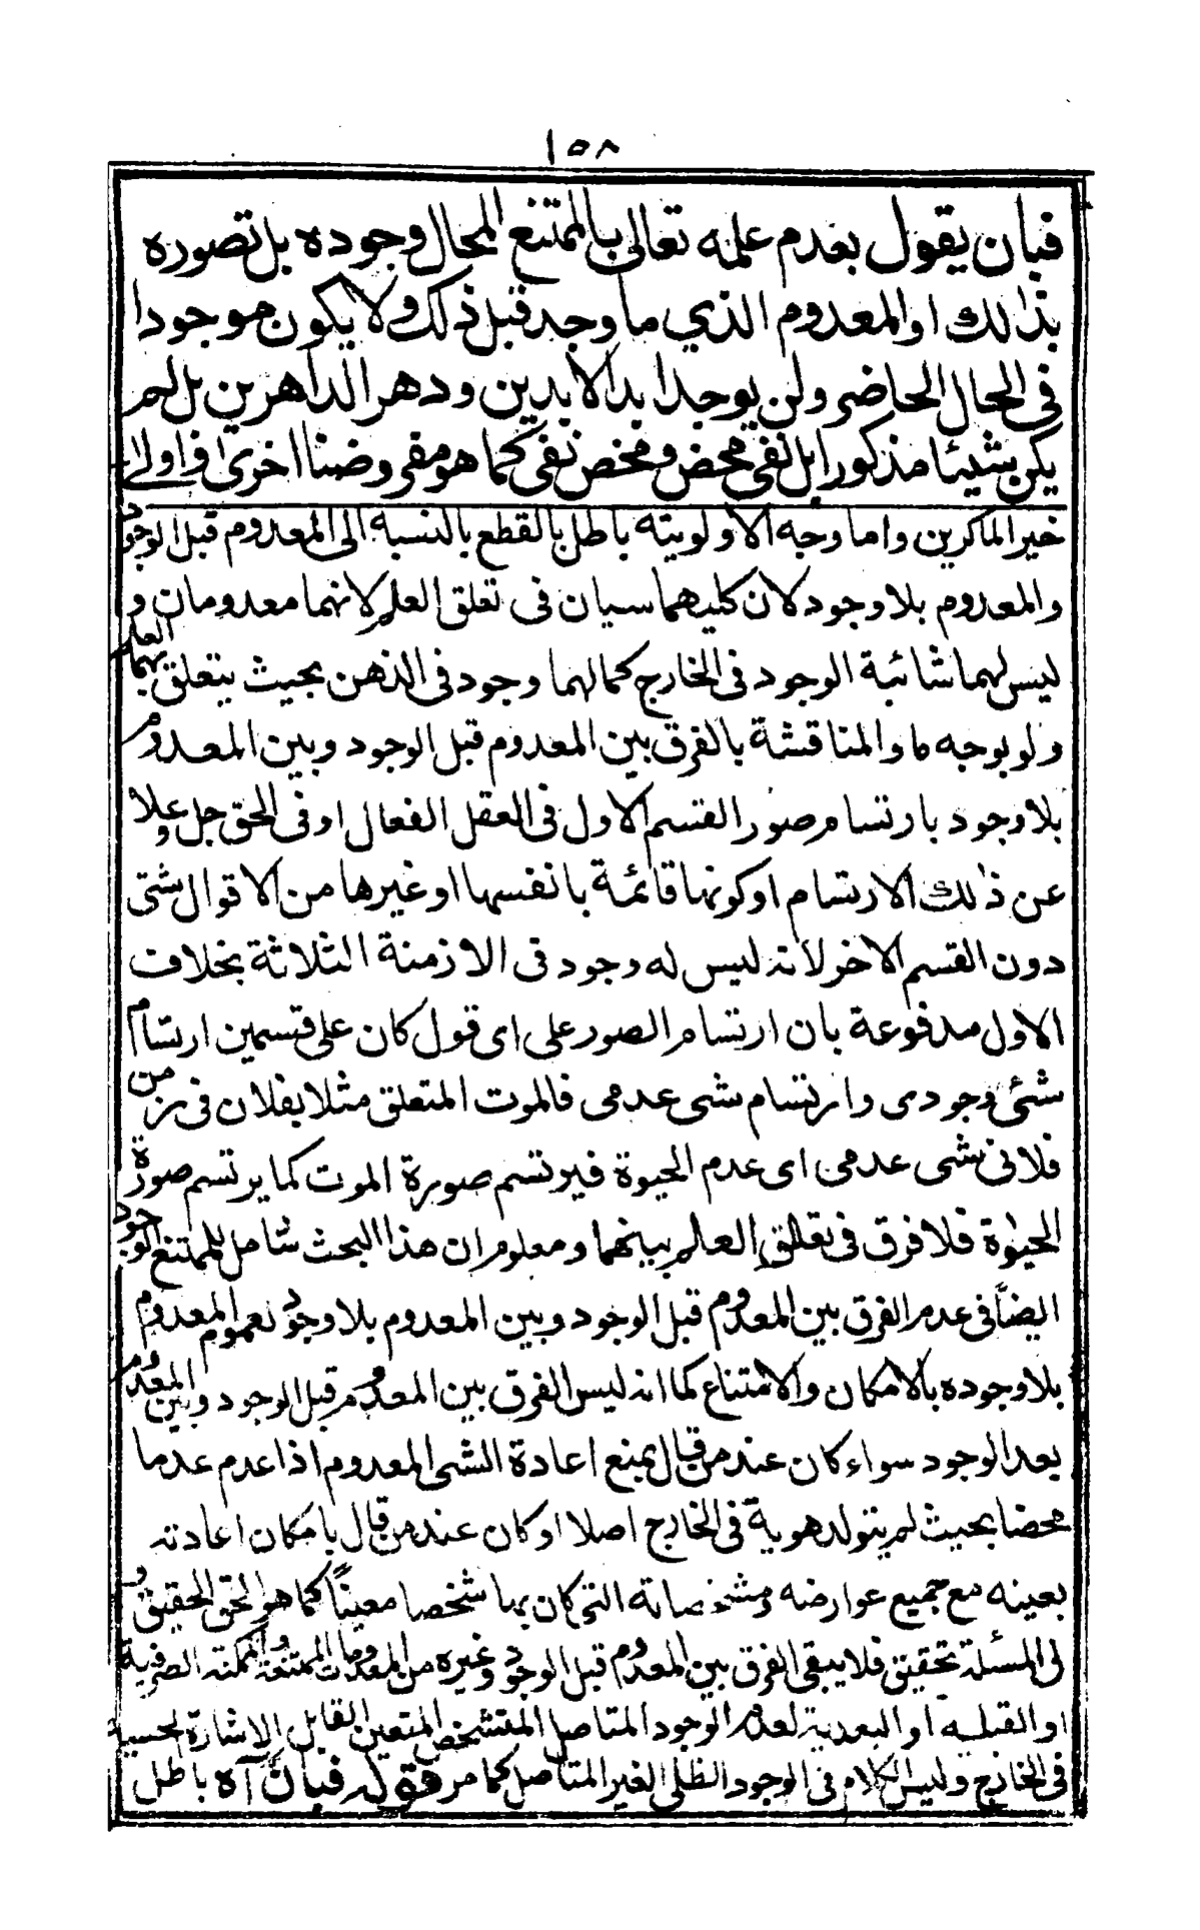 ١٥٨
فبان يقول بعدم علمه تعالى بالممتنع المحال وجوده بل تصوره
بذالك او المعدوم الذي ما وجد قبل ذلك ولا يكون موجودا
فى الحال الحاضر ولن يوجد ابد الابدين ودهر الداهرين بل لم
يكن شيئا مذكورا بل نفى محض ومحض نفى كما هو مفروضنا اخرى واولى
خير الماكرين واما وجه الاولويته باطل بالقطع بالنسبة الى المعدوم قبل الوجود
والمعدوم بلا وجود لان كليهما سيان فى تعلق العلم لانهما معدومان و
ليس لهما شائبة الوجود فى الخارج كما لهما وجود فى الذهن بحيث يتعلق بهما العلم
ولو بوجه ما والمناقشة بالفرق بين المعدوم قبل الوجود وبين المعدوم
بلا وجود بارتسام صور القسم الاول فى العقل الفعال او فى الحق جل وعلا
عن ذالك الارتسام او كونها قائمة بانفسها او غيرها من الاقوال شتى
دون القسم الاخر لانه ليس له وجود فى الازمنة الثلاثة بخلاف
الاول مدفوعة بان ارتسام الصور على اى قول كان على قسمين ارتسام
شئ وجودى وارتسام شى عدمى فالموت المتعلق مثلا بفلان فى زمن
فلانى شى عدمى اى عدم الحيوة فيرتسم صورة الموت كما يرتسم صورة
الحيوة فلا فرق فى تعلق العلم بينهما ومعلوم ان هذا البحث شامل للممتنع الوجود
ايضا فى عدم الفرق بين المعدوم قبل الوجود وبين المعدوم بلا وجود لعموم المعدوم
بلا وجوده بالامكان والامتناع كما انه ليس الفرق بين المعدوم قبل الوجود وبين المعدوم
بعد الوجود سواء كان عند من قال بمنع اعادة الشى المعدوم اذا عدم عدما
محضا بحيث لم يتولد هوية فى الخارج اصلا او كان عند من قال بامكان اعادته
بعينه مع جميع عوارضه ومشخصاته التى كان بها شخصا معينا كما هو الحق الحقيق و
لى المسئلة تحقيق فلا يبقى الفرق بين المعدوم قبل الوجود وغيره من المعدومات الممتنعة والممكنة الصرفية
او القبلية او البعدية لعدم الوجود المتاصل المتشخص المتعين القابل الاشارة الحسية
فى الخارج وليس الكلام فى الوجود الظلى الغير المتاصل كما مر فقوله فبان آه باطل